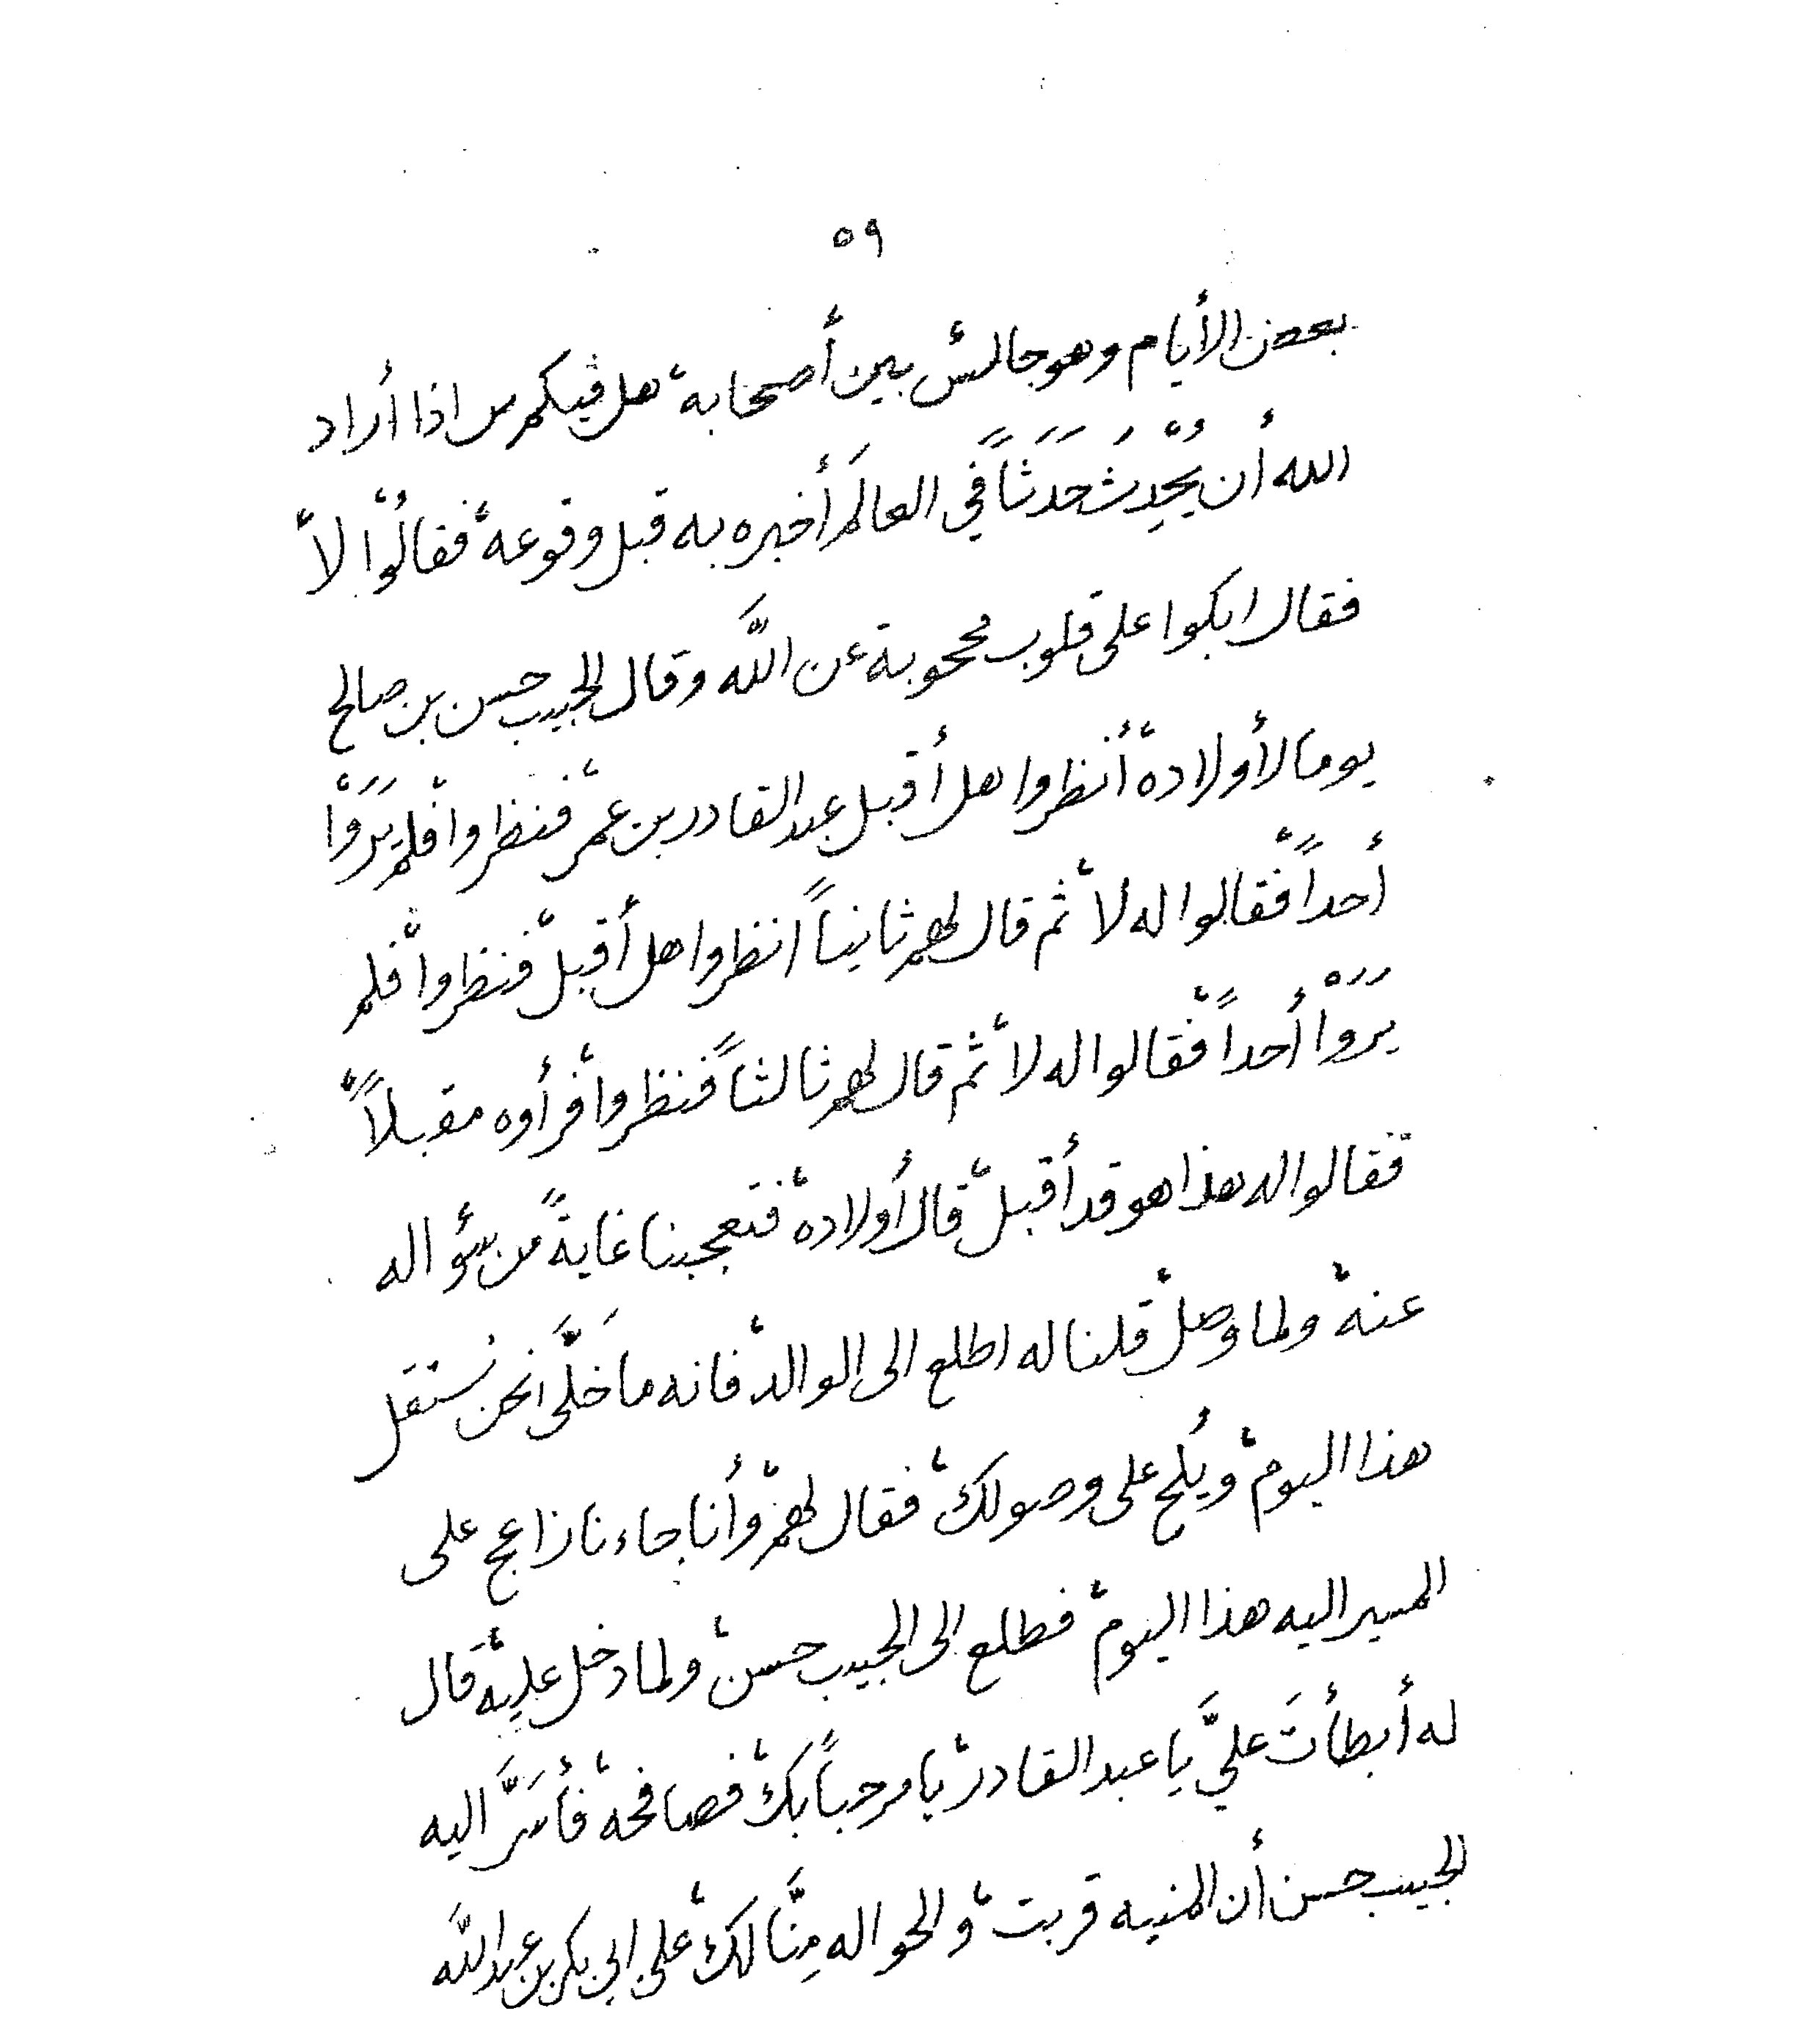 ٥٩
بعض الأيام وهو جالسٌ بين أصحابه، هل فيكم من اذا أراد
الله أن يُحْدِثَ حَدَثاً في العالَم أخبره به قبل وقوعه، فقالُوْا لا،
فقال ابكوا على قلوب محجوبة عن اللَّه وقال الحبيب حسن بن صالح
يوما لأولاده، أنظروا هل أقبل عبد القادر بن عمر، فنظروا، فلم يَرَوْا
أحداً، فقالوا له لا، ثم قال لهم ثانياً انظروا هل أقبل، فنظروا، فلم
يَرَوْا أحداً، فقالوا له لا، ثم قال لهم ثالثاً فنظروا، فرأوه مقبلاً،
فقالوا له هذا هو قد أقبل، قال أولاده، فتعجبنا غايةً من سؤاله
عنه، ولما وصل، قلنا له اطلع الى الوالد، فانه ما خَلَّى نحن نستقل
هذا اليوم، ويُلح على وصولك، فقال لهم، وأنا جاءنا زاعج على
المسير اليه هذا اليوم، فطلع الى الحبيب حسن، ولما دخل عليه، قال
له أبطأتَ عليَّ يا عبد القادر، يا مرحباً بك، فصافحه، فأسَرَّ اليه
الحبيب حسن أن المنيه قربت، والحواله مِنَّا لك، على ابي بكر بن عبد اللَّه